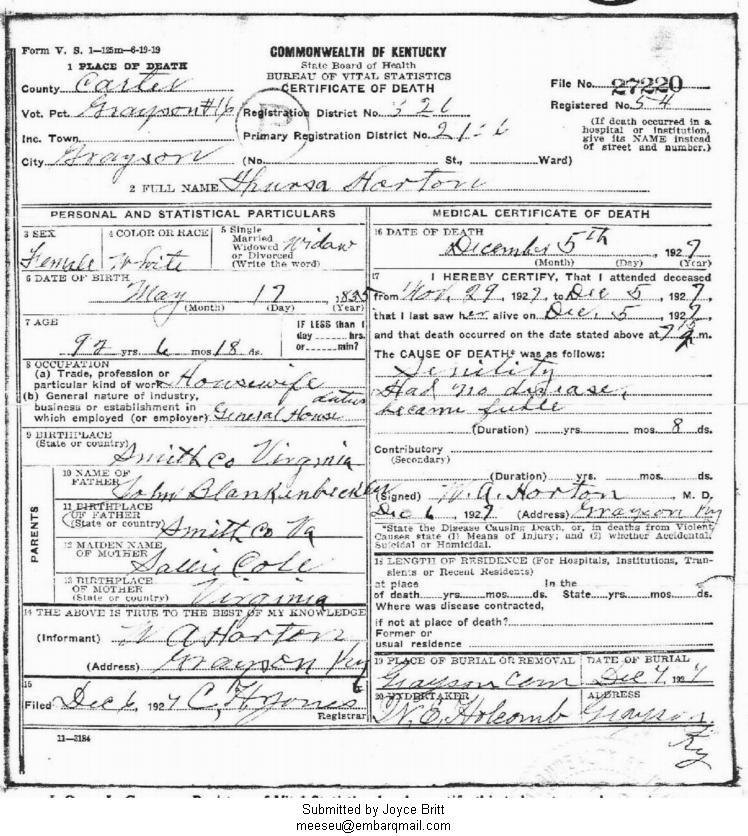 Form V. S. 1—125m—6-19-19
COMMONWEALTH OF KENTUCKY
State Board of Health
BUREAU OF VITAL STATISTICS
CERTIFICATE OF DEATH
1 PLACE OF DEATH
County Carter
Vot. Pct. Grayson #16
Inc. Town
City Grayson
File No. 27220
Registered No. 54
Registration District No. 326
Primary Registration District No.
(No. St., Ward)
(If death occurred in a
hospital or institution,
give its NAME instead
of street and number.)
2 FULL NAME Thursa Horton
PERSONAL AND STATISTICAL PARTICULARS
3 SEX Female
4 COLOR OR RACE White
5 Single
Married
Widowed
or Divorced
(Write the word) Widow
6 DATE OF BIRTH
May 17, 1835
(Month) (Day) (Year)
7 AGE
92 yrs. 6 mos. 18 ds.
IF LESS than 1
day hrs.
or min?
8 OCCUPATION
(a) Trade, profession or
particular kind of work Housewife
(b) General nature of industry,
business or establishment in
which employed (or employer) General House duties
9 BIRTHPLACE
(State or country) Smith Co Virginia
PARENTS
10 NAME OF
FATHER John Blankenbeckler
11 BIRTHPLACE
OF FATHER
(State or country) Smith Co Va
12 MAIDEN NAME
OF MOTHER Sallie Cole
13 BIRTHPLACE
OF MOTHER
(State or country) Virginia
14 THE ABOVE IS TRUE TO THE BEST OF MY KNOWLEDGE
(Informant) W A Horton
(Address) Grayson Ky
15
Filed Dec 6, 1927 C. H. Jones
Registrar
11—3184
MEDICAL CERTIFICATE OF DEATH
16 DATE OF DEATH
December 5th, 1927
(Month) (Day) (Year)
17 I HEREBY CERTIFY, That I attended deceased
from Nov. 29 1927, to Dec 5, 1927,
that I last saw her alive on Dec. 5, 1927
and that death occurred on the date stated above at m.
The CAUSE OF DEATH* was as follows:
Senility
Had no disease,
became feeble
(Duration) yrs. mos. 8 ds.
Contributory
(Secondary)
(Duration) yrs. mos. ds.
(Signed) W. A. Horton, M. D.
Dec 6, 1927 (Address) Grayson Ky
*State the Disease Causing Death, or, in deaths from Violent
Causes state (1) Means of Injury; and (2) whether Accidental,
Suicidal or Homicidal.
18 LENGTH OF RESIDENCE (For Hospitals, Institutions, Tran-
sients or Recent Residents)
At place In the
of death yrs. mos. ds. State yrs. mos. ds.
Where was disease contracted,
if not at place of death?
Former or
usual residence
19 PLACE OF BURIAL OR REMOVAL
Grayson Cem
DATE OF BURIAL
Dec 7, 1927
20 UNDERTAKER
W. E. Holcomb
ADDRESS
Grayson,
Ky
Submitted by Joyce Britt
meeseu@embarqmail.com